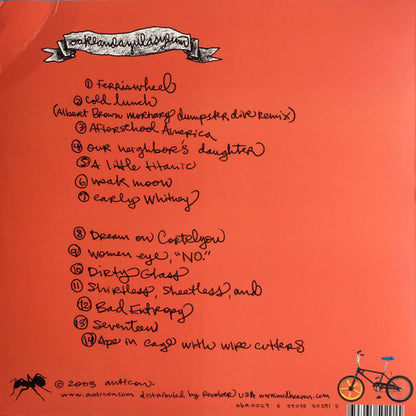 oaklandazulasylum
① Ferriswheel
② Cold lunch
(Albert Brown mortuary dumpster dive remix)
③ Afterschool America
④ our neighbor's daughter
⑤ A little titanic
⑥ weak moon
⑦ early Whitney
⑧ Dream on Cortelyou
⑨ women eye, "NO."
⑩ Dirty Glass
⑪ Shirtless, Sheetless, and
⑫ Bad Entropy
⑬ Seventeen
⑭ Ape in cage with wire cutters
© 2003 anticon.
www.anticon.com distributed by Revolver USA www.midheaven.com
abr0029